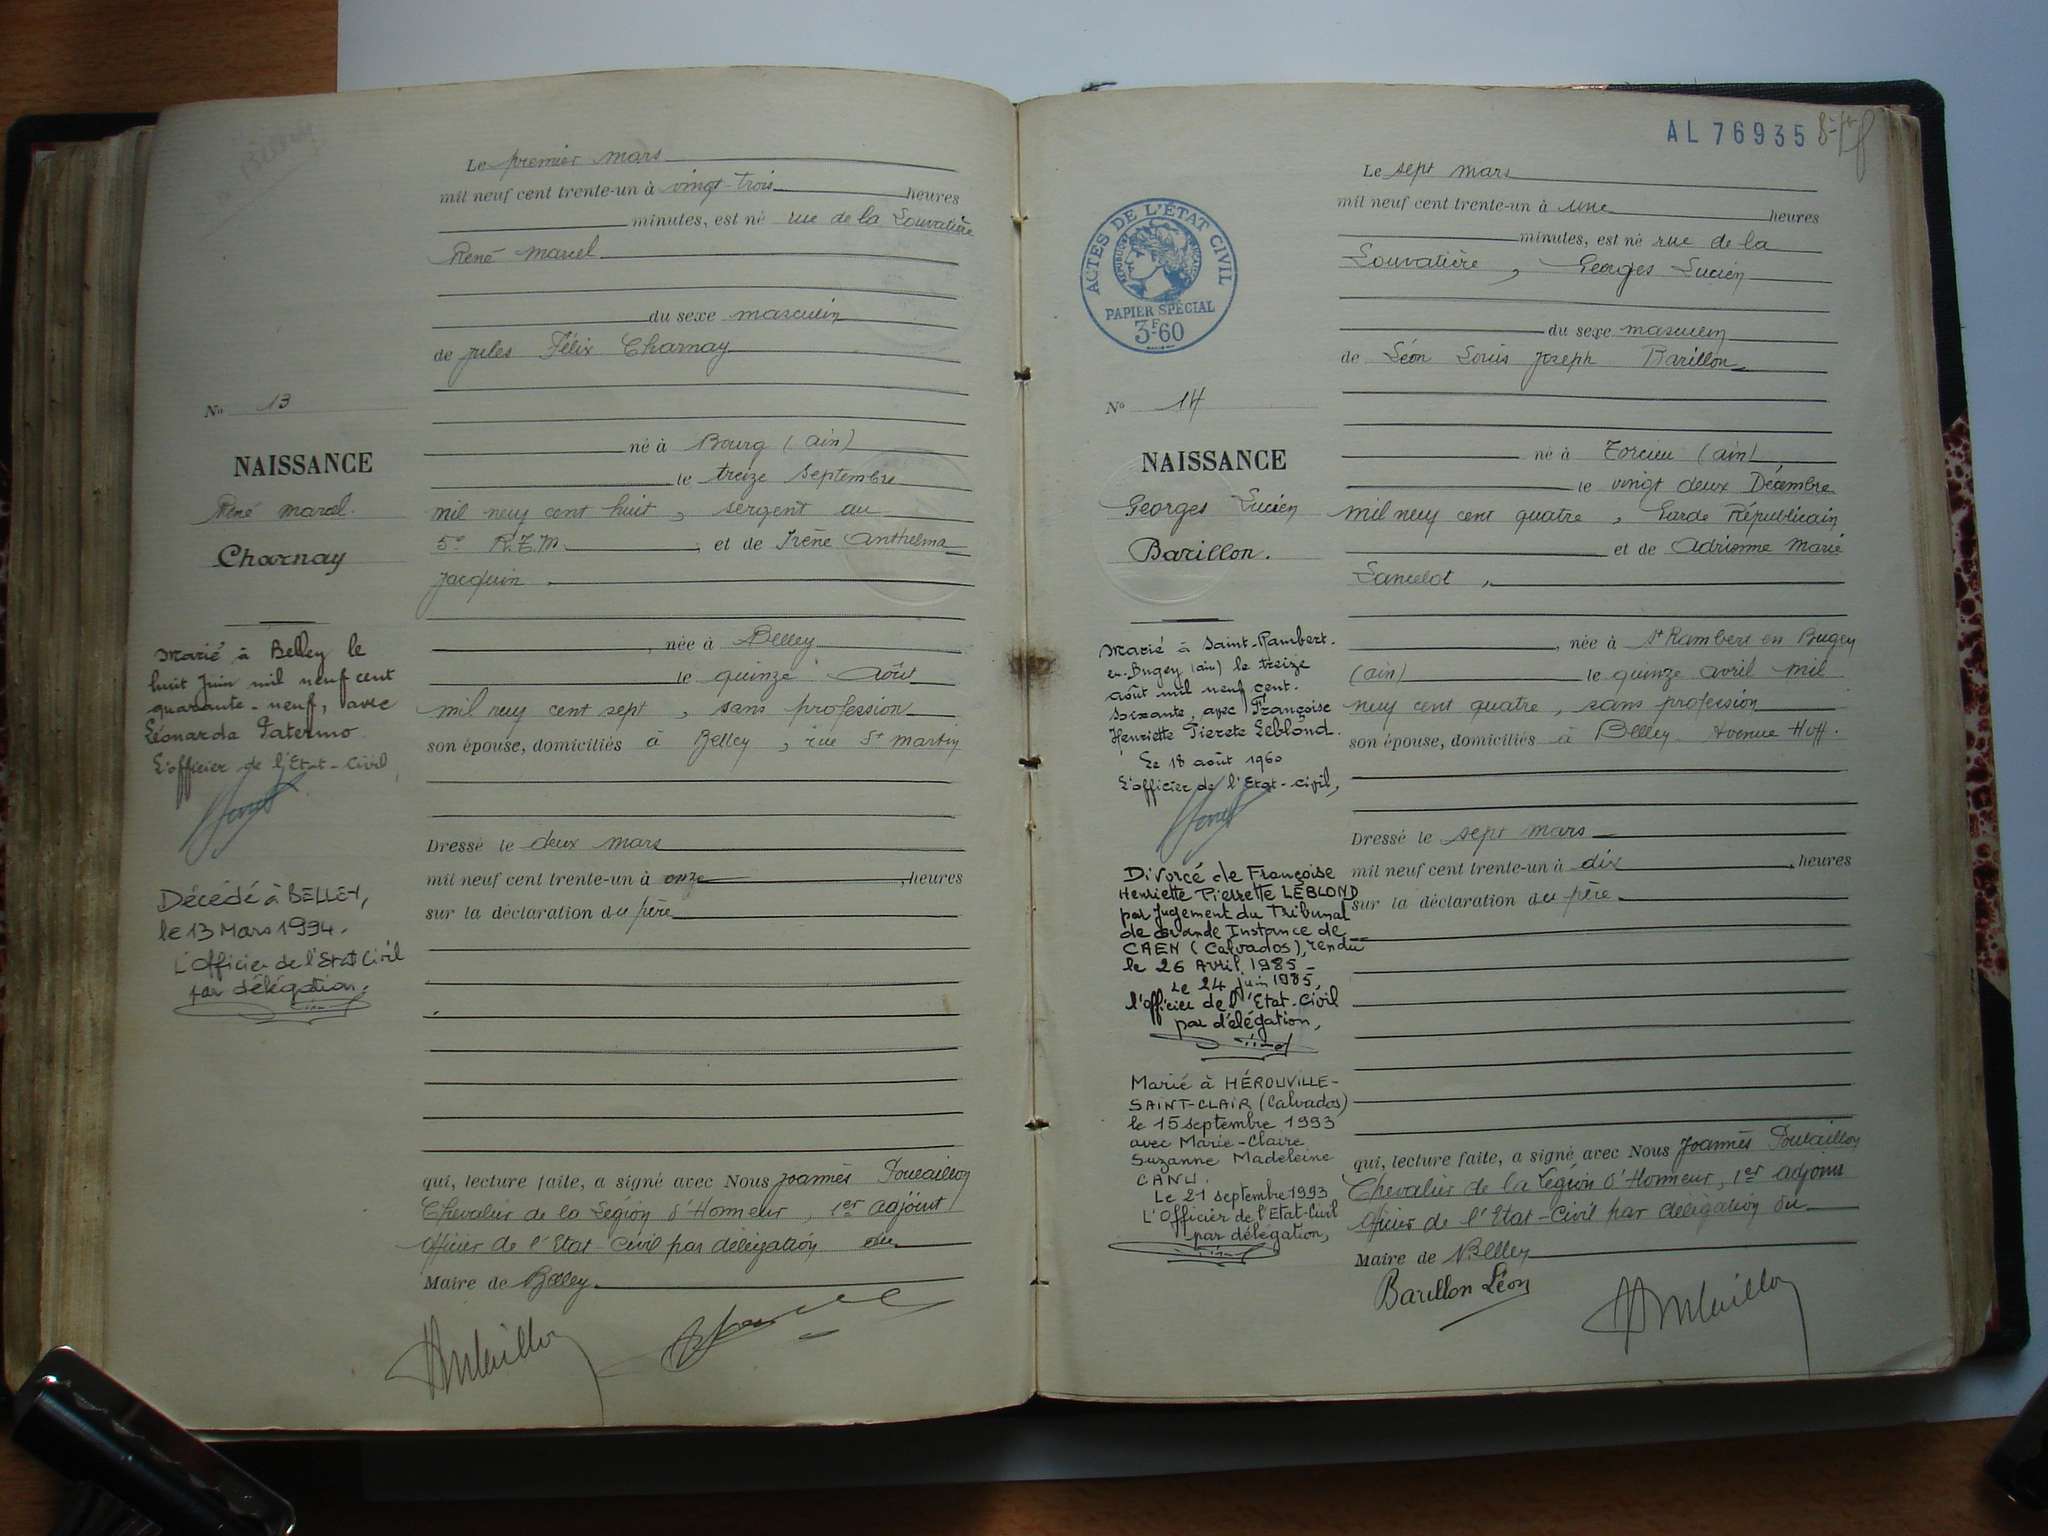 Le premier mars
mil neuf cent trente-un à vingt-trois heures
minutes, est né rue de la Louvatière
René Marcel
du sexe masculin
de Jules Félix Charnay
né à Bourg (Ain)
le treize Septembre
mil neuf cent huit, sergent au
5e R.T.M. et de Irène Anthelma
Jacquin,
née à Belley
le quinze Août
mil neuf cent sept, sans profession
son épouse, domiciliés à Belley, rue St Martin
Dressé le deux mars
mil neuf cent trente-un à onze, heures
sur la déclaration du père
qui, lecture faite, a signé avec Nous Joannès
Chevalier de la Légion d'Honneur, 1er adjoint
Officier de l'Etat-Civil par délégation du
Maire de Belley
No 13
NAISSANCE
René Marcel
Charnay
Marié à Belley le
huit Juin mil neuf cent
quarante-neuf, avec
Léonarda Paterno
L'officier de l'Etat-Civil,
Décédé à BELLEY,
le 13 Mars 1994.
L'Officier de l'Etat Civil
par délégation,
AL 76935
ACTES DE L'ÉTAT CIVIL
RÉPUBLIQUE FRANÇAISE
PAPIER SPÉCIAL
3F60
Le sept mars
mil neuf cent trente-un à une heures
minutes, est né rue de la
Louvatière, Georges Lucien
du sexe masculin
de Léon Louis Joseph Barillon
né à Torcieu (Ain)
le vingt deux Décembre
mil neuf cent quatre, Garde Républicain
et de Adrienne Marie
Lancelot,
née à St Rambert en Bugey
(Ain) le quinze avril mil
neuf cent quatre, sans profession
son épouse, domiciliés à Belley Avenue Hoff.
Dressé le sept mars
mil neuf cent trente-un à dix, heures
sur la déclaration du père
qui, lecture faite, a signé avec Nous Joannès
Chevalier de la Légion d'Honneur, 1er adjoint
Officier de l'Etat-Civil par délégation du
Maire de Belley
Barillon Léon
No 14
NAISSANCE
Georges Lucien
Barillon.
Marié à Saint-Rambert-
en-Bugey (Ain) le treize
août mil neuf cent.
soixante, avec Françoise
Henriette Pierrete Leblond.
Le 18 août 1960
L'officier de l'Etat-civil,
Divorcé de Françoise
Henriette Pierrette LEBLOND
par Jugement du Tribunal
de Grande Instance de
CAEN (Calvados), rendu
le 26 Avril 1985 -
Le 24 Juin 1985,
l'Officier de l'Etat-Civil
par délégation,
Marié à HÉROUVILLE-
SAINT-CLAIR (Calvados)
le 15 septembre 1993
avec Marie-Claire
Suzanne Madeleine
CANU.
Le 21 septembre 1993
L'Officier de l'Etat-Civil
par délégation,